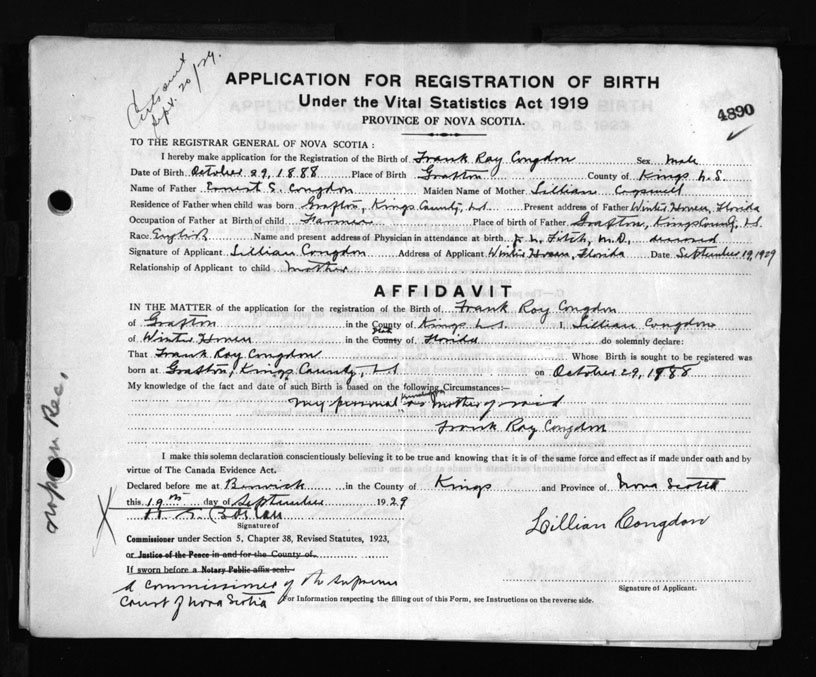 Cert. sent
Sept. 20/29.
APPLICATION FOR REGISTRATION OF BIRTH
Under the Vital Statistics Act 1919
4890
PROVINCE OF NOVA SCOTIA.
TO THE REGISTRAR GENERAL OF NOVA SCOTIA :
I hereby make application for the Registration of the Birth of Frank Ray Congdon Sex Male
Date of Birth October 29, 1888 Place of Birth Grafton County of Kings N.S
Name of Father Ernest S. Congdon Maiden Name of Mother Lillian Cogswell
Residence of Father when child was born Grafton, Kings County, N.S Present address of Father Winter Haven, Florida
Occupation of Father at Birth of child Farmer Place of birth of Father Grafton, Kings County, N.S.
Race English Name and present address of Physician in attendance at birth Fitch, M.D., deceased
Signature of Applicant Lillian Congdon Address of Applicant Winter Haven, Florida Date September 19, 1929
Relationship of Applicant to child Mother
AFFIDAVIT
IN THE MATTER of the application for the registration of the Birth of Frank Ray Congdon
of Grafton in the County of Kings N.S. I, Lillian Congdon
of Winter Haven in the County State of Florida do solemnly declare:
That Frank Ray Congdon Whose Birth is sought to be registered was
born at Grafton, Kings County, N.S on October 29, 1888
My knowledge of the fact and date of such Birth is based on the following Circumstances:—
My personal knowledge as mother of said
Frank Ray Congdon
I make this solemn declaration conscientiously believing it to be true and knowing that it is of the same force and effect as if made under oath and by
virtue of The Canada Evidence Act.
Declared before me at Berwick in the County of Kings and Province of Nova Scotia
this 19th day of September 1929
Signature of
Lillian Congdon
Commissioner under Section 5, Chapter 38, Revised Statutes, 1923,
or Justice of the Peace in and for the County of
If sworn before a Notary Public affix seal.
A Commissioner of the Supreme
Court of Nova Scotia
Signature of Applicant.
For Information respecting the filling out of this Form, see Instructions on the reverse side.